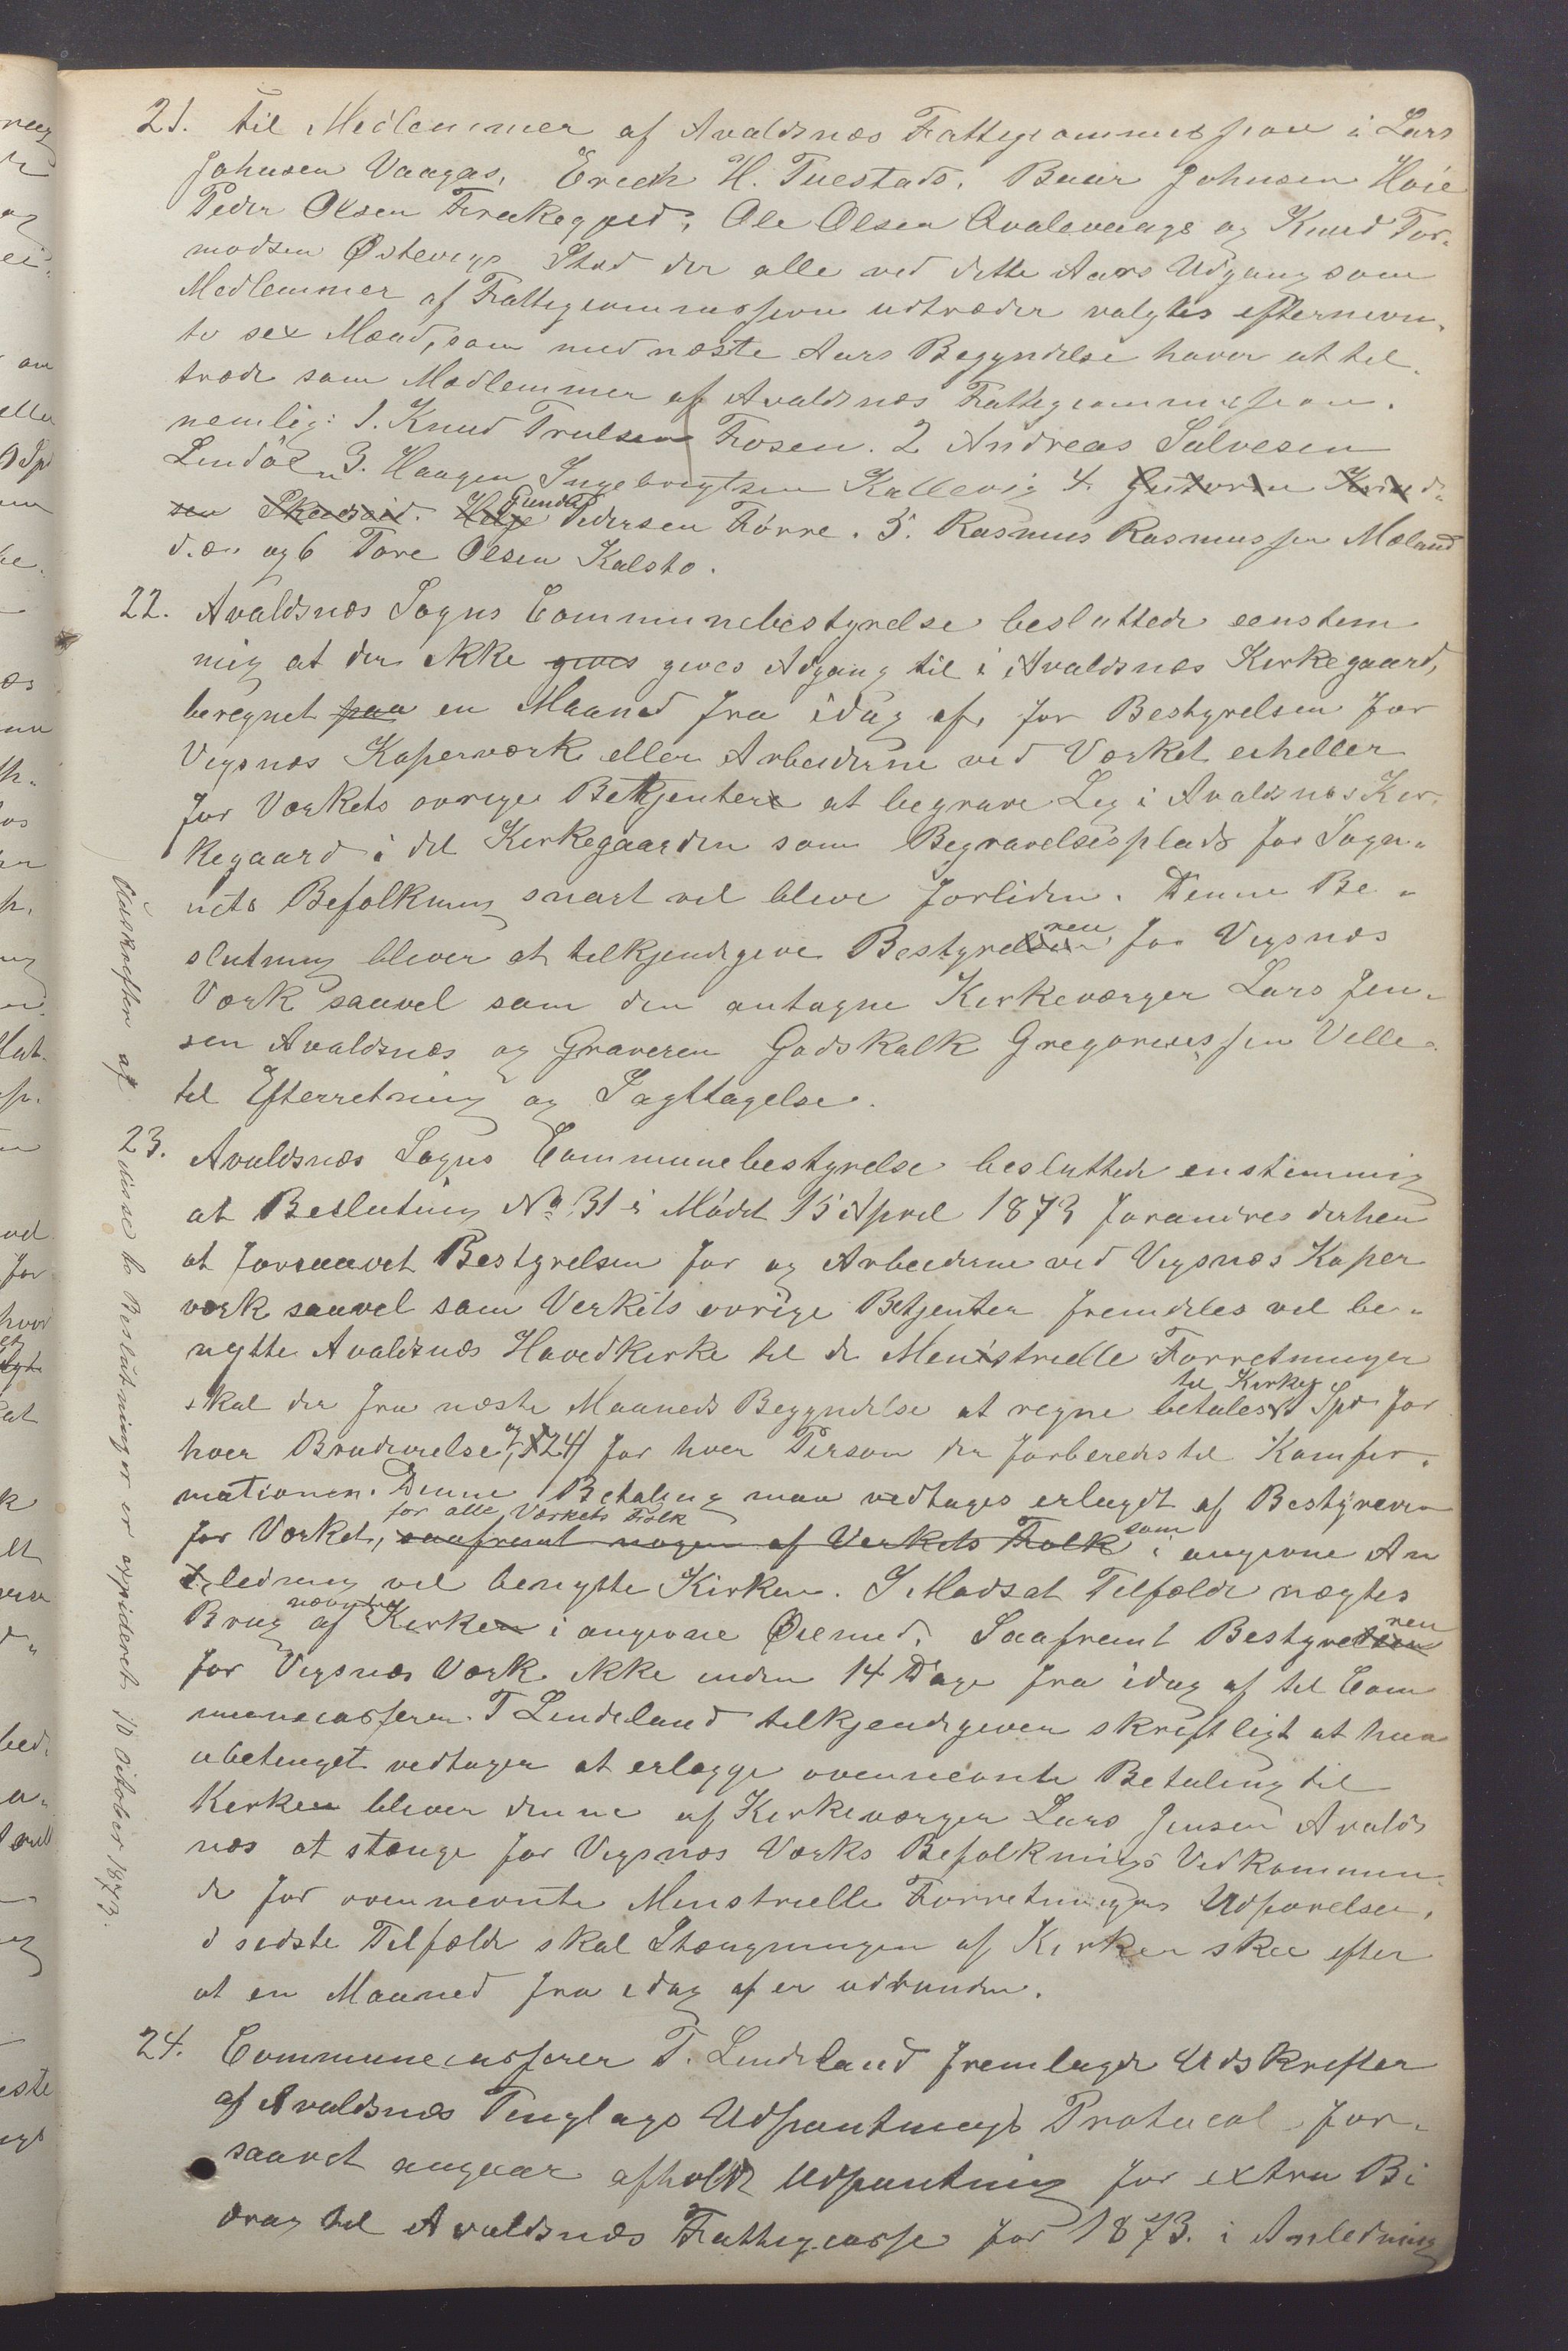 21. Til Medlemmer af Avaldsnæs Fattigcommission i Lars
Johnsen Vaagas, Erich H. Tuestads, Baar Johnsen Høie
Peder Olsen Ferkegjed, Ole Olsen Qvalevaags og Knud Tor-
modsen Østevigs Sted der alle ved dette Aars Udgang som
Medlemmer af Fattigcommissionen udtræder valgtes efternevn-
te sex Mænd, som med næste Aars Begyndelse haver at til-
træde som Medlemmer af Avaldsnæs Fattigcommission.
nemlig: 1. Knud Trulsen Fosen. 2 Andreas Salvesen
Lindøe 3. Haagen Ingebregtsen Kallevig 4. Gutorm Knud-
sen Skeiseid. Helje Gunder Pedersen Førre. 5. Rasmus Rasmussen Mæland
d.æ. og 6 Tore Olsen Kalstø.
22. Avaldsnæs Sogns Communebestyrelse besluttede eenstem
mig at der ikke gives gives Adgang til i Avaldsnæs Kirkegaard,
beregnet paa en Maaned fra idag af, for Bestyrelsen for
Vigsnæs Koperværk eller Arbeiderne ved Værket eiheller
for Værkets øvrige Betjentere at begrave Lig i Avaldsnæs Kir-
kegaard i det Kirkegaarden som Begravelsesplads for Sogn-
nets Befolkning snart vil blive forliden. Denne Be-
slutning bliver at tilkjendegive Bestyrelsen ren for Vigsnæs
Værk saavel som den antagne Kirkeværger Lars Jen-
sen Avaldsnæs og Graveren Godskalk Gregoriussen Velle
til Efterretning og Iagttagelse.
23. Avaldsnæs Sogns Communebestyrelse besluttede enstemmig
at Beslutning No 31 i Mødet 15 April 1873 forandres derhen
at forsaavidt Bestyrelsen for og Arbeiderne ved Vigsnæs Koper
værk saavel som Verkets øvrige Betjenter fremdeles vil be-
nytte Avaldsnæs Hovedkirke til de Menistrielle Forretninger
til Kirken
skal der fra næste Maaneds Begyndelse at regne betales 1 Spd for
hver Brudevielse og 24 for hver Person der forberedes til Konfir-
mationen. Denne Betaling maa vedtages erlagdt af Bestyreren
for alle Værkets Folk
for Værket, saafremt nogen af Verkets Folk som i angivne An
ledning vil benytte Kirken. I Modsat Tilfælde nægtes
nævnte
Brug af Kirken i angivne Øiemed. Saafremt Bestyrelsen ren
for Vigsnæs Værk ikke inden 14 Dage fra idag af til Com
munecasserer T Lindeland tilkjendegiver skriftligt at han
ubetinget vedtager at erlægge ovennevnte Betaling til
Kirken bliver denne af Kirkeværger Lars Jensen Avalds
næs at stænge for Vigsnæs Værks Befolknings Vedkommen-
de for ovennevnte Minstrielle Forretningers Udførelse.
I sidste Tilfælde skal Stængningen af Kirken skee efter
at en Maaned fra idag af er udrunden.
24. Communecasserer T. Lindeland fremlagde Udskrifter
af Avaldsnæs Tinglags Udpantnings Protocol for-
saavidt angaar afholdt Udpantning for extra Bi
drag til Avaldsnæs Fattigcasse for 1873. i Anledning
Udskrifter af disse to Beslutninger er expideret 10 October 1873.